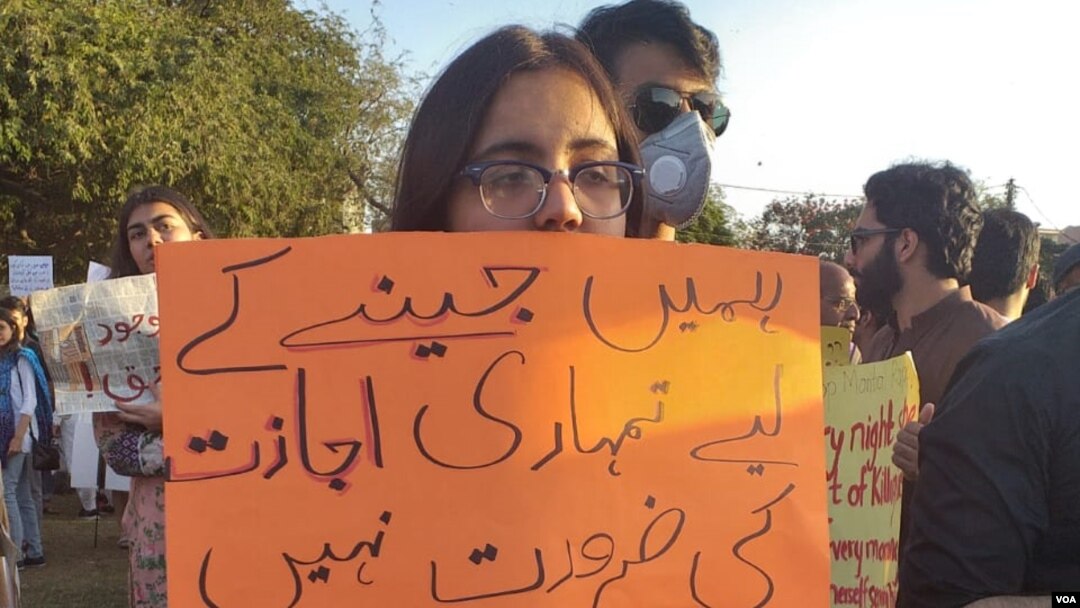 ہمیں جینے کے
لیے تمہاری اجازت
کی ضرورت نہیں
وجود
حق!
Manto
ry night she
t of Killing
very morn
herself
VOA